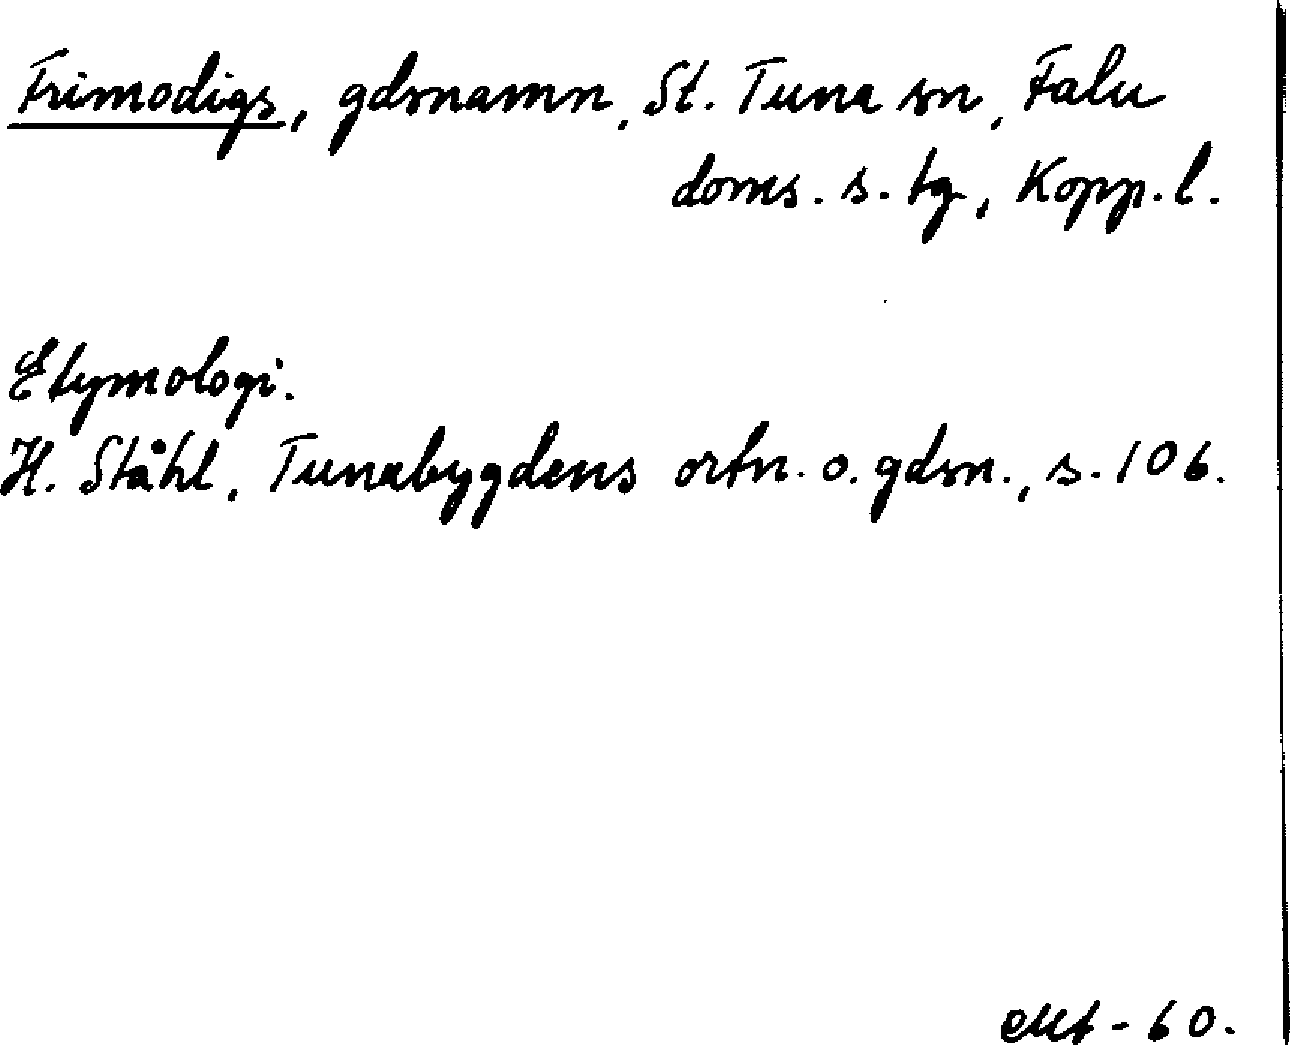 Frimodigs, gdsnamn, St. Tuna sn, Falu
doms. s. tg, Kopp. l.
Etymologi.
H. Ståhl, Tunabygdens ortn. o. gdsn., s. 106.
-60.